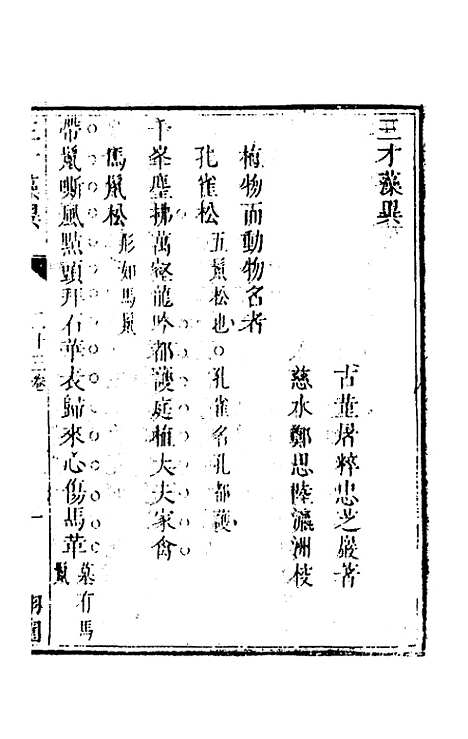 三才藻異
古菫屠粹忠芝巖著
慈水鄭思陞瀛洲校
植物而動物名者
孔雀松 五鬣松也○孔雀名孔都護
千峯塵拂萬壑龍吟都護庭植大夫家禽
馬鬣松 形如馬鬣
帶鬣嘶風點頭拜石華表歸來心傷馬革 墓有馬鬣
三才藻異 二十三卷 一